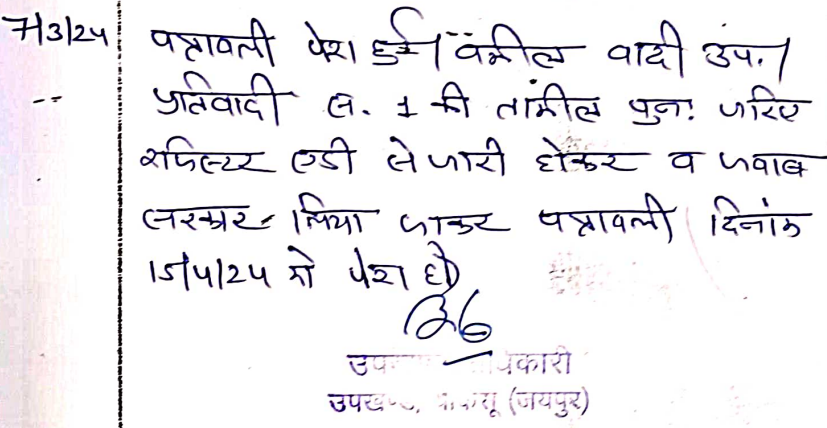 7/3/24 पत्रावली पेश हुई। वकील वादी उप.।
प्रतिवादी सं. 1 की तामील पुनः जरिए
रजिस्टर एडी से जारी होकर व जवाब
सरकार लिया जाकर पत्रावली दिनांक
15/4/24 को पेश हो
उप कारी
उपखण्ड, (जयपुर)